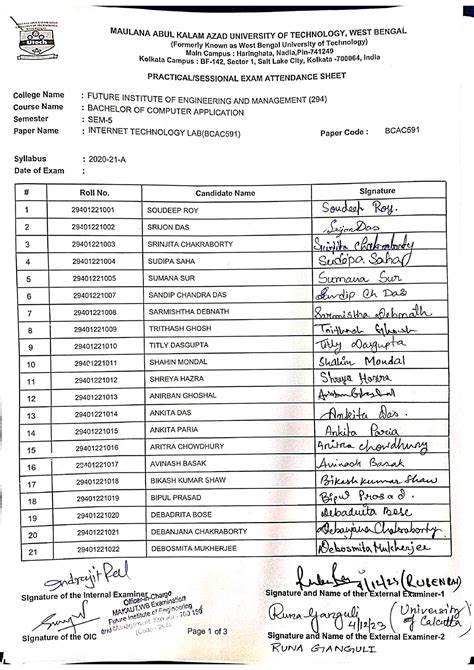 MAULANA ABUL KALAM AZAD UNIVERSITY OF TECHNOLOGY, WEST BENGAL
(Formerly Known as West Bengal University of Technology)
Main Campus : Haringhata, Nadia,Pin-741249
Kolkata Campus : BF-142, Sector 1, Salt Lake City, Kolkata -700064, India
PRACTICAL/SESSIONAL EXAM ATTENDANCE SHEET
College Name : FUTURE INSTITUTE OF ENGINEERING AND MANAGEMENT (294)
Course Name : BACHELOR OF COMPUTER APPLICATION
Semester : SEM-5
Paper Name : INTERNET TECHNOLOGY LAB(BCAC591) Paper Code : BCAC591
Syllabus : 2020-21-A
Date of Exam :
# Roll No. Candidate Name Signature
1 29401221001 SOUDEEP ROY Soudeep Roy.
2 29401221002 SRIJON DAS Srijon Das
3 29401221003 SRINJITA CHAKRABORTY Srinjita Chakraborty
4 29401221004 SUDIPA SAHA Sudipa Saha
5 29401221005 SUMANA SUR Sumana Sur
6 29401221007 SANDIP CHANDRA DAS Sandip Ch Das
7 29401221008 SARMISHTHA DEBNATH Sarmistha Debnath
8 29401221009 TRITHASH GHOSH Trithash Ghosh
9 29401221010 TITLY DASGUPTA Titly Dasgupta
10 29401221011 SHAHIN MONDAL Shahin Mondal
11 29401221012 SHREYA HAZRA Shreya Hazra
12 29401221013 ANIRBAN GHOSHAL Anirban Ghoshal
13 29401221014 ANKITA DAS Ankita Das.
14 29401221015 ANKITA PARIA Ankita Paria
15 29401221016 ARITRA CHOWDHURY Aritra chowdhury
16 29401221017 AVINASH BASAK Avinash Basak
17 29401221018 BIKASH KUMAR SHAW Bikash kumar Shaw
18 29401221019 BIPUL PRASAD Bipul Prasad.
19 29401221020 DEBADRITA BOSE Debadrita Bose
20 29401221021 DEBANJANA CHAKRABORTY Debanjana Chakraborty
21 29401221022 DEBOSMITA MUKHERJEE Debosmita Mukherjee
Indrajit Pal
Signature of the Internal Examiner
Officer-in-Charge
MAKAUT,WB Examination
Future Institute of Engineering
and Management, Kolkata - 700 150
Signature of the OIC
Page 1 of 3
Signature and Name of ther External Examiner-1
Runa Ganguli 4/12/23 (University of Calcutta)
Signature and Name of the External Examiner-2
RUNA GANGULI